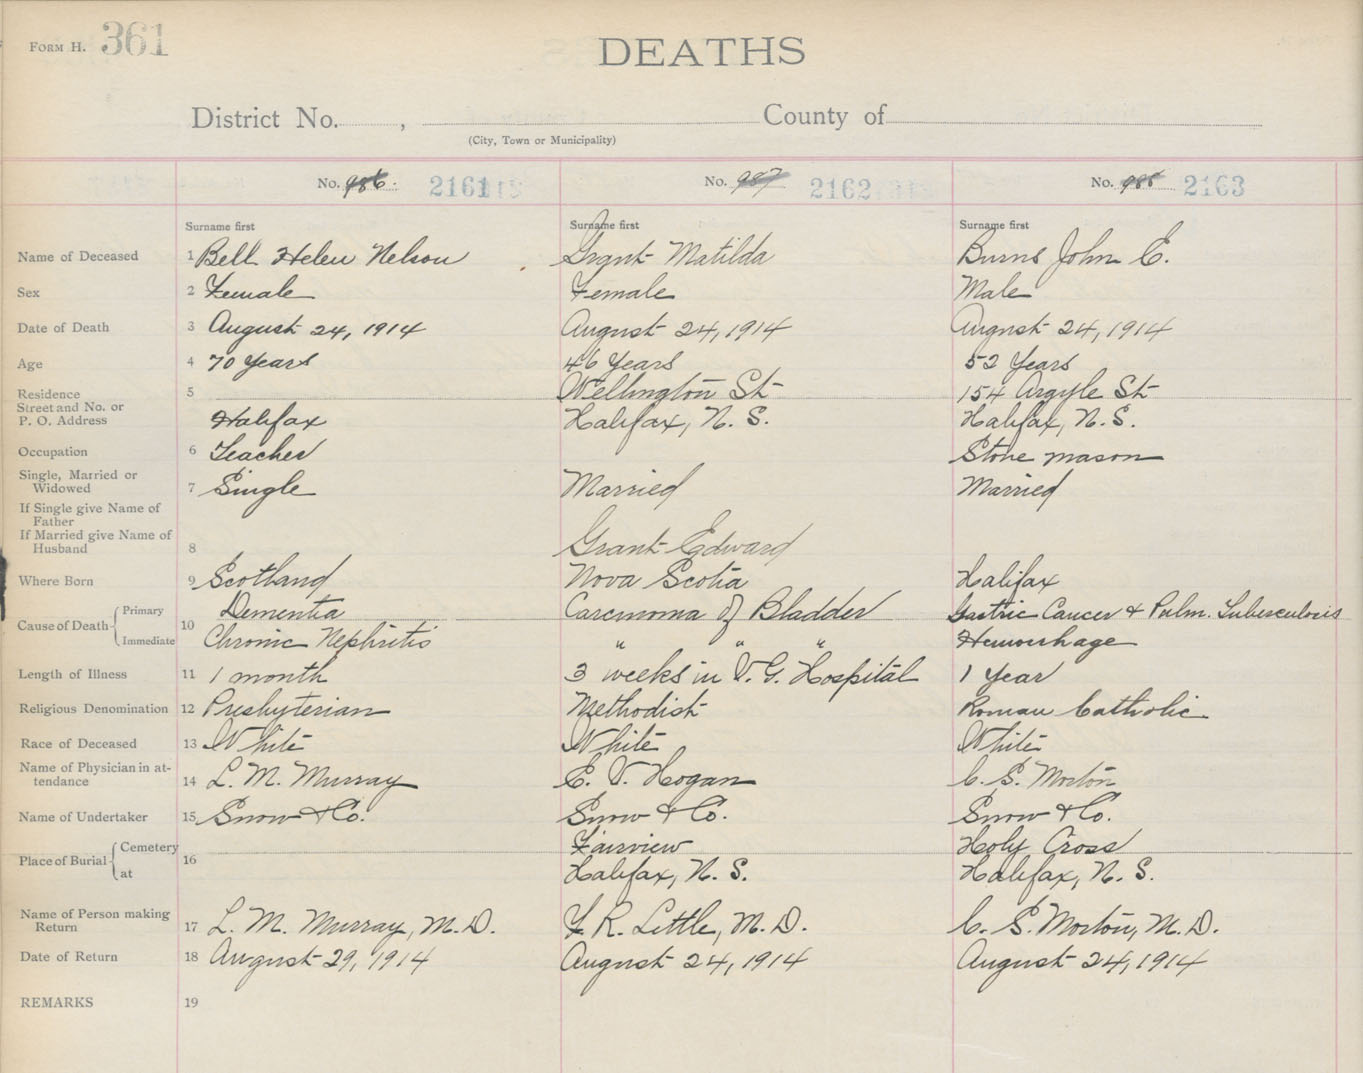 FORM H. 361
DEATHS
District No. , County of
(City, Town or Municipality)
No. 986. 2161 No. 987 2162 No. 988 2163
Surname first Surname first Surname first
Name of Deceased 1 Bell Helen Nelson Grant Matilda Burns John E.
Sex 2 Female Female Male
Date of Death 3 August 24, 1914 August 24, 1914 August 24, 1914
Age 4 70 Years 46 Years 52 Years
Residence 5 Wellington St 154 Argyle St
Street and No. or
P. O. Address Halifax Halifax, N. S. Halifax, N. S.
Occupation 6 Teacher Stone mason
Single, Married or
Widowed 7 Single Married Married
If Single give Name of
Father
If Married give Name of
Husband 8 Grant Edward
Where Born 9 Scotland Nova Scotia Halifax
Cause of Death 10 Primary Dementia Carcinoma of Bladder Gastric Cancer & Pulm. Tuberculosis
Immediate Chronic Nephritis " " " Hemorrhage
Length of Illness 11 1 month 3 weeks in V. G. Hospital 1 Year
Religious Denomination 12 Presbyterian Methodist Roman Catholic
Race of Deceased 13 White White White
Name of Physician in at-
tendance 14 L. M. Murray E. V. Hogan C. S. Morton
Name of Undertaker 15 Snow & Co. Snow & Co. Snow & Co.
Place of Burial 16 Cemetery Fairview Holy Cross
at Halifax, N. S. Halifax, N. S.
Name of Person making
Return 17 L. M. Murray, M. D. F. R. Little, M. D. C. S. Morton, M. D.
Date of Return 18 August 29, 1914 August 24, 1914 August 24, 1914
REMARKS 19